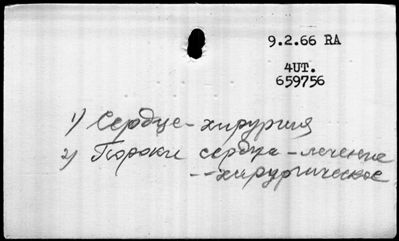 9.2.66 RA
4UT.
659756
1) Сердце - хирургия
2) Пороки сердца - лечение
-- хирургическое